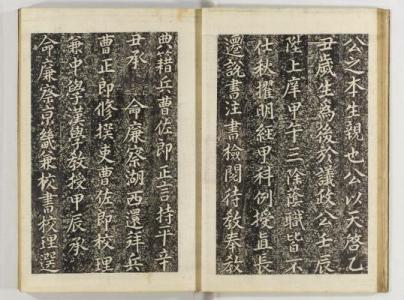 公之本生親也公以天啓乙
丑歲生爲後於議政公壬辰
陞上庠甲午三除蔭職皆不
仕秋擢明經甲科例授直長
遷說書注書檢閱待敎奉敎
典籍兵曹佐郎正言持平辛
丑承 命廉察湖西還拜兵
曹正郎修撰吏曹佐郎校理
兼中學漢學敎授甲辰承
命廉察京畿兼校書校理選